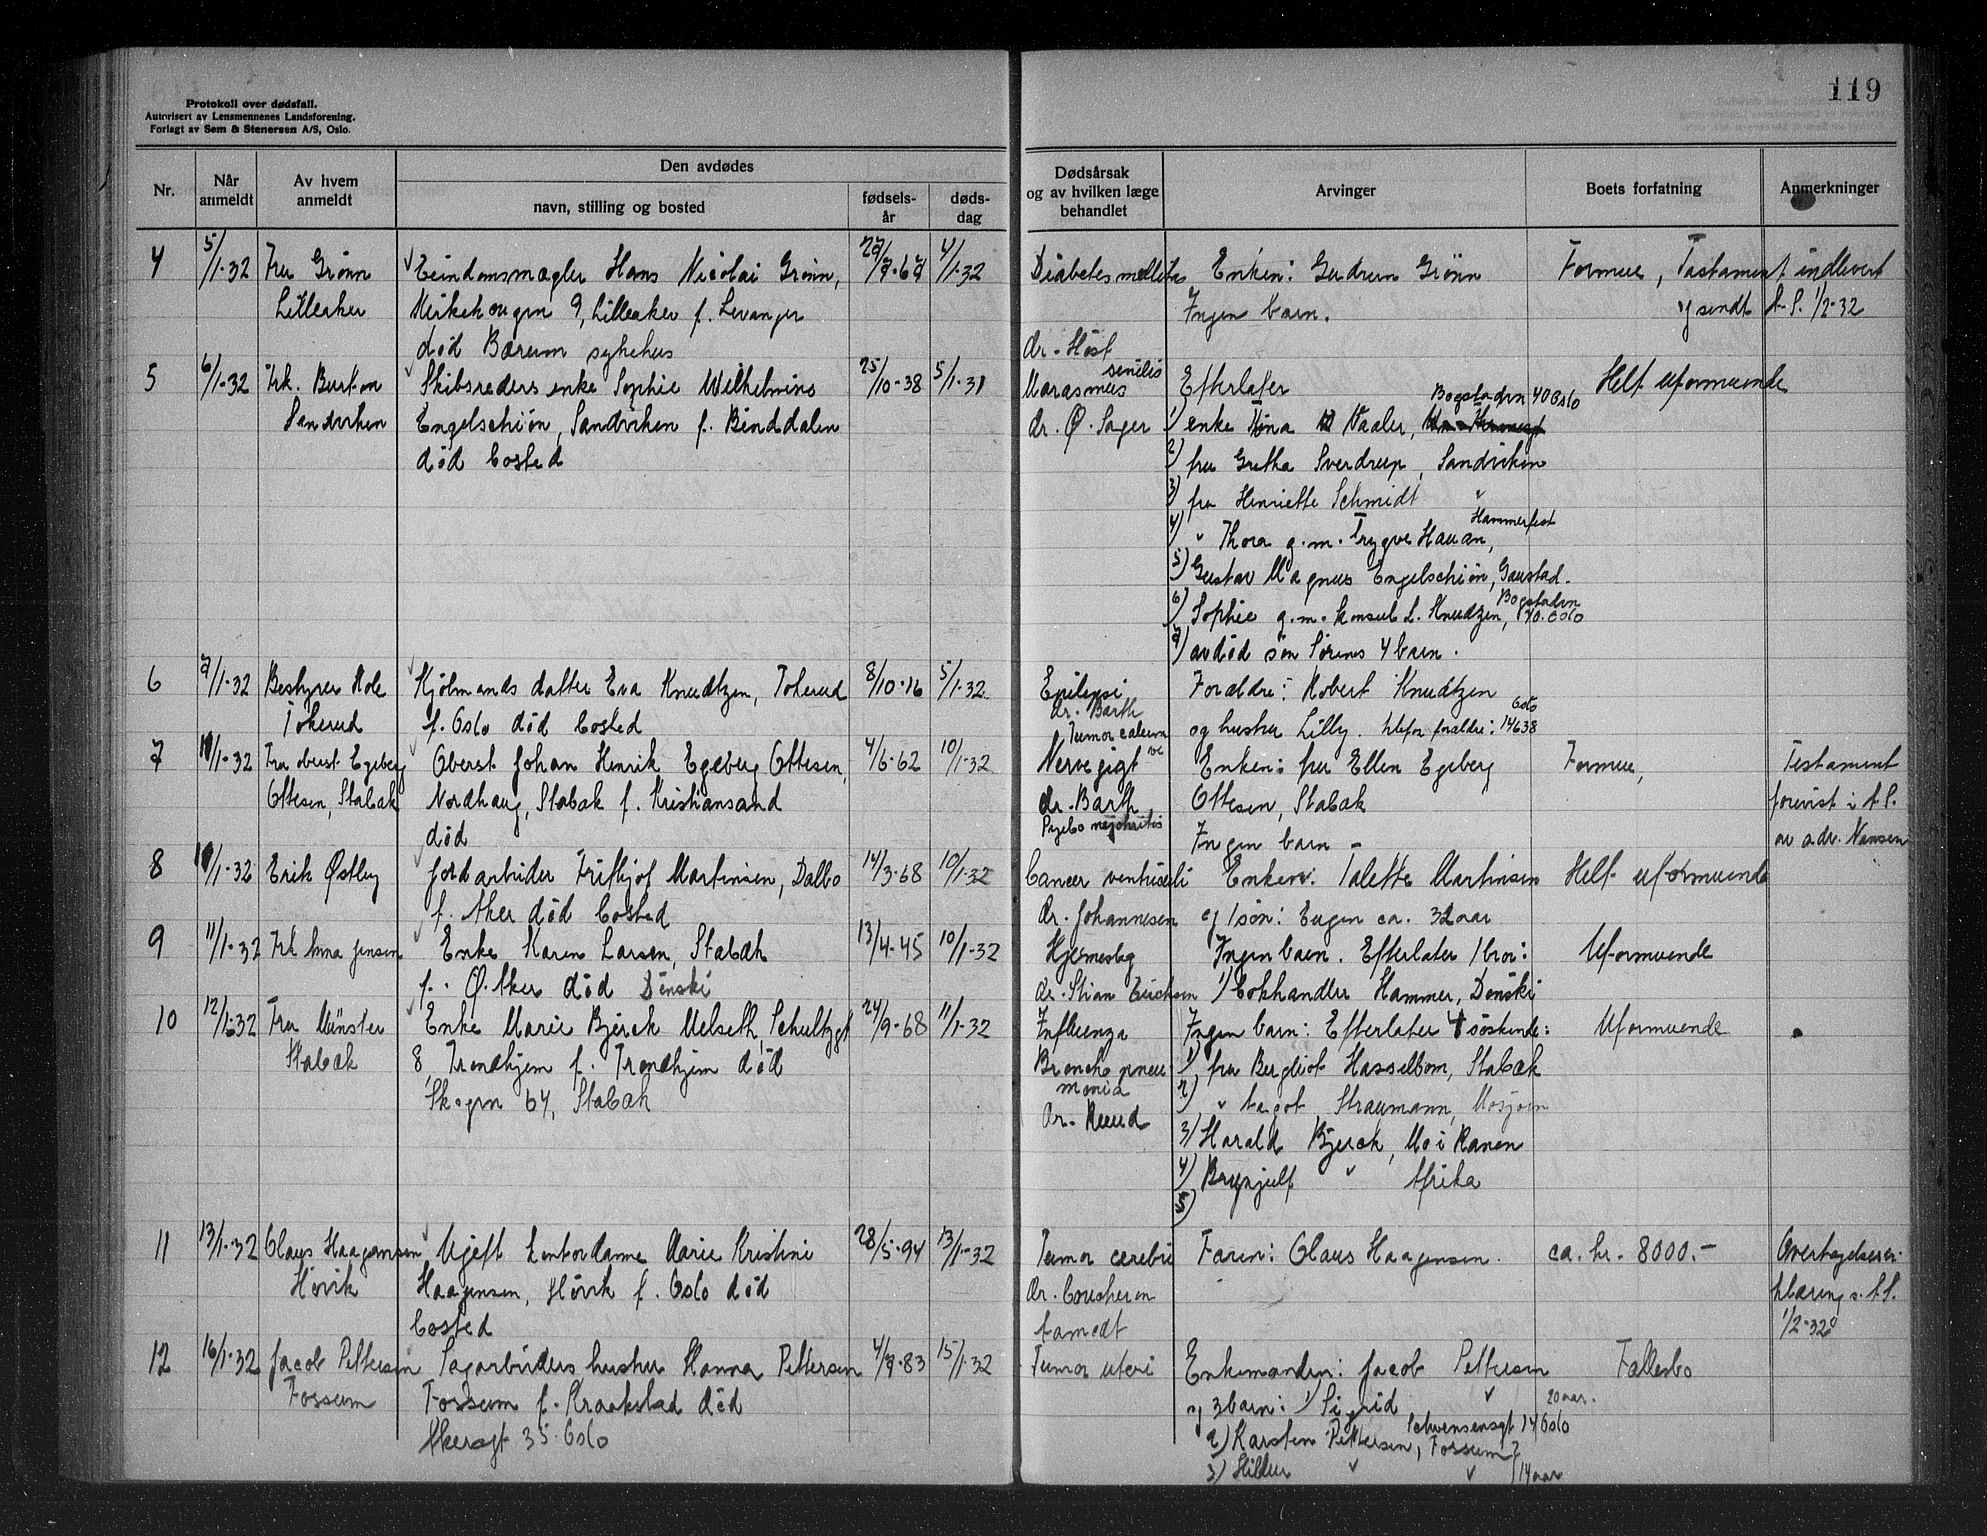 Protokoll over dødsfall.
Autorisert av Lensmennenes Landsforening.
Forlagt av Sem & Stenersen A/S, Oslo.
119
Nr.
Når anmeldt
Av hvem anmeldt
Den avdødes
navn, stilling og bosted
fødsels-år
døds-dag
Dødsårsak og av hvilken læge behandlet
Arvinger
Boets forfatning
Anmerkninger
4 5/1-32 Fru Grønn Eiendomsmægler Hans Nicolai Grønn, 27/7-67 4/1-32 Diabetes mellitus Enken: Gudrun Grønn Formue, Testament indlevert
Lilleaker Kirkehaugen 9, Lilleaker f. Levanger Ingen barn. og sendt A.S. 1/2-32
død Bærum sykehus dr. Høst
5 6/1-32 Frk. Burton Skibsreders enke Sophie Wilhelmine 25/10-38 5/1-31 Marasmus senilis Efterlater Helt uformuende
Sandviken Engelschiøn, Sandviken f. Binddalen dr. Ø. Sager 1) enke Tina Vaaler, Bogstadvn 40 Oslo
død bosted 2) fru Gretha Sverdrup, Sandviken
3) fru Henriette Schmidt "
4) " Thora g.m. Trygve Hauan, Hammerfest
5) Gustav Magnus Engelschiøn, Gaustad.
6) Sophie g.m. konsul L. Knudtzen, Bogstadvn 40. Oslo
7) avdød søn Sørens 4 barn.
6 7/1-32 Bestyrer Hole Kjølmands datter Eva Knudtzen, Tokerud 8/10-16 5/1-32 Epilepsi Forældre: Robert Knudtzen
Tokerud f. Oslo død bosted dr. Barth og hustru Lilly. tlefon foraldre: Oslo 14638
7 11/1-32 Fru oberst Egeberg Oberst Johan Henrik Egeberg Ottesen, 4/6-62 10/1-32 Tumor Nervegigt Enken: fru Ellen Egeberg Formue, Testament
Ottesen, Stabæk Nordhaug, Stabæk f. Kristiansand dr. Barth Ottesen, Stabæk forevist i A.S.
død Pyelo nephritis Ingen barn - av adv. Nansen
8 11/1-32 Erik Østby Jordarbeider Fritjof Martinsen, Dalbo 14/3-68 10/1-32 Cancer ventriculi Enken: Talette Martinsen Helt uformuende
f. Aker død bosted dr. Johannesen og 1 søn: Eugen ca. 32 aar
9 11/1-32 Frk Anna Jensen Enke Karen Larsen, Stabæk 13/4-45 10/1-32 Hjerneslag Ingen barn. Efterlater 1 bror: Uformuende
f. Ø. Aker død Dønski dr. Stian Erichsen 1) bokhandler Hammer, Dønski
10 12/1-32 Fru Münster Enke Marie Bjerck Melseth, Schultzgt 24/9-68 11/1-32 Influenza Ingen barn: Efterlater 4 søskende: Uformuende
Stabæk 8, Trondhjem f. Trondhjem død Broncho pneu- 1) fru Bergliot Hasselbom, Stabæk
Skogvn 64, Stabæk monia 2) " Straumann, Mosjøen
dr. Ruud 3) Harald Bjerck, Mo i Ranen
4) Brynjulf " Afrika
5)
11 13/1-32 Claus Haagensen Ugift kontordame Marie Kristine 28/5-94 13/1-32 Tumor cerebri Faren: Claus Haagensen. ca. kr. 8000.- Overtagelseser-
Høvik Haagensen, Høvik f. Oslo død dr. Coucheron klæring s. A.S.
bosted Aamodt 1/2-32
12 16/1-32 Jacob Pettersen Sagarbeiders hustru Hanna Pettersen 4/7-83 15/1-32 Tumor uteri Enkemanden: Jacob Pettersen Fællesbo
Fossum Fossum f. Kraakstad død og 3 barn: 1) Sigrid " 20 aar.
Akersgt 35. Oslo 2) Karsten Pettersen, Schwensensgt 14 Oslo
Fossum
3) Hildur " " 14 aar